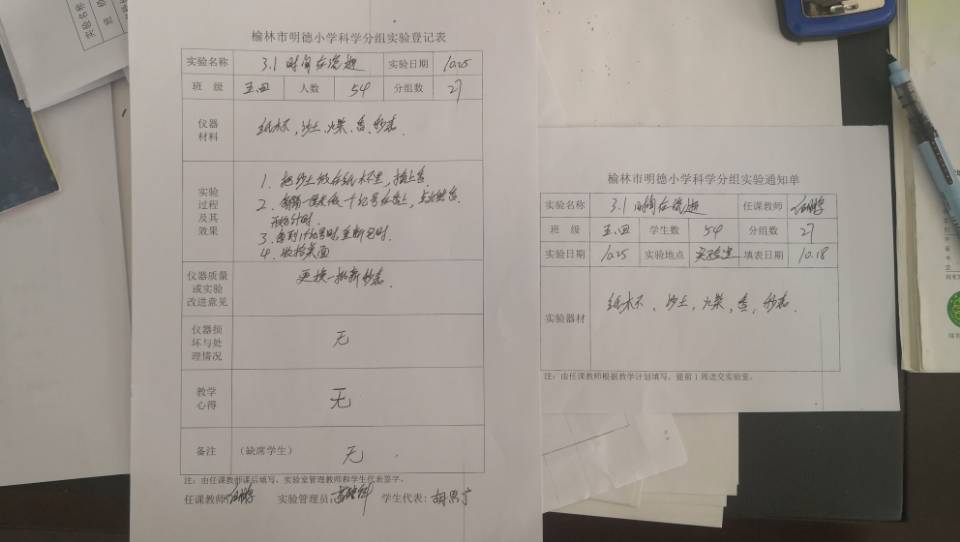 榆林市明德小学科学分组实验登记表
实验名称 3.1 时间在流逝 实验日期 10.25
班 级 五.四 人数 54 分组数 27
仪器材料 纸杯,沙土,火柴、香、秒表.
实验过程及其效果
1. 把沙土放在纸杯里,插上香.
2. 每隔一厘米做一个记号在香上,点燃香,开始计时.
3. 香到1个记号时,重新记时.
4. 收拾桌面
仪器质量或实验改进意见 更换一批新秒表.
仪器损坏与处理情况 无
教学心得 无
备注 (缺席学生) 无
注:由任课教师课后填写,实验室管理教师和学生代表签字。
任课教师: 实验管理员: 学生代表:
榆林市明德小学科学分组实验通知单
实验名称 3.1 时间在流逝 任课教师
班 级 五.四 学生数 54 分组数 27
实验日期 10.25 实验地点 实验室 填表日期 10.18
实验器材 纸杯、沙土,火柴,香,秒表.
注:由任课教师根据教学计划填写,提前1周送交实验室。